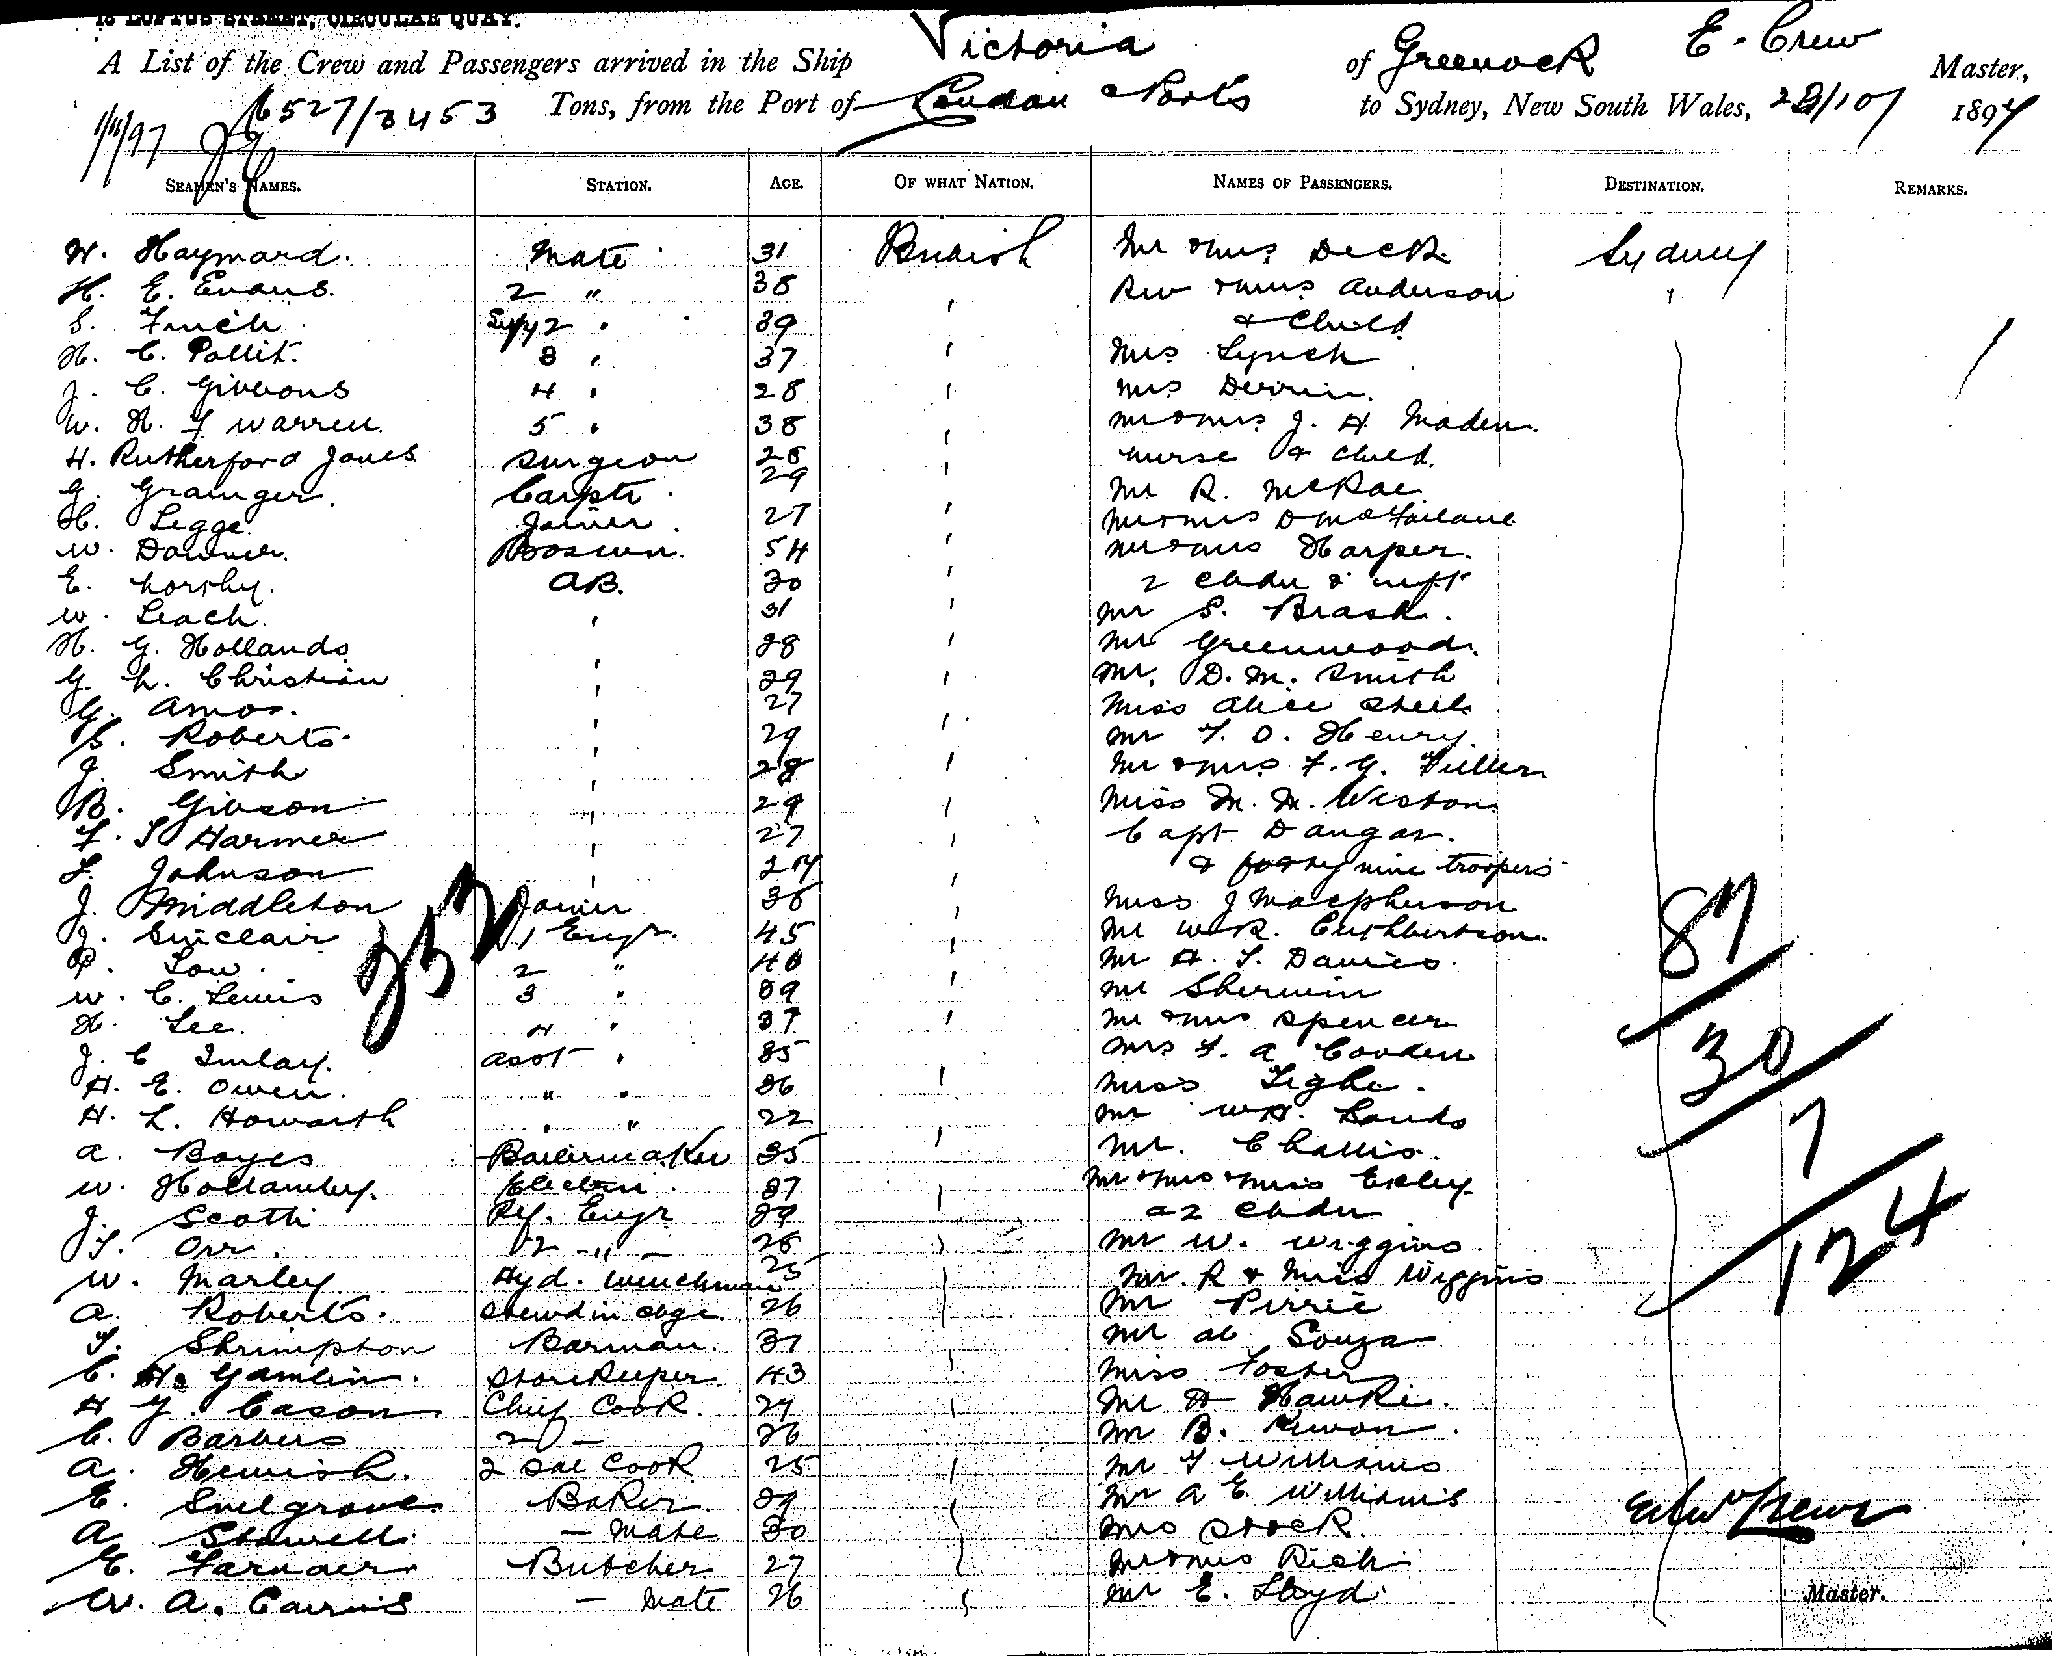 18 LOFTUS STREET, CIRCULAR QUAY.
A List of the Crew and Passengers arrived in the Ship Victoria of Greenock E. Crew Master,
1/11/97 6527/3453 Tons, from the Port of London & Ports to Sydney, New South Wales, 28/10/ 1897
SEAMEN'S NAMES. STATION. AGE. OF WHAT NATION. NAMES OF PASSENGERS. DESTINATION. REMARKS.
W. Haymard. Mate 31 British Mr & Mrs Deck Sydney
H. E. Evans. 2 " 38 Rev & Mrs Anderson "
S. Finch 2 " 39 & Child
H. C. Pollit. 3 " 37 Mrs Lynch
J. C. Gibbons 4 " 28 Mrs
W. H. F Warren 5 " 38 Mr & Mrs J. H Maden
H. Rutherford Jones Surgeon 28 nurse & child.
G. Grainger. Carptr. 29 Mr R. McRae
H. Legge Joiner. 27 Mr & Mrs D McFarlane
W. Bosun. 54 Mr & Mrs Harper.
E. AB. 30 2 chdn & inft
W. Leach. " 31 Mr S. Brash.
H. G. Hollands " 28 Mr Greenwood.
G. L. Christian " 29 Mr. D. M. Smith
G. Amos. " 27 Miss Alice
S. Roberts. " 29 Mr F. O. Henry.
J. Smith " 28 Mr & Mrs F. G. Fuller
B. Gibson " 29 Miss M. M. Weston
F. S Harmer " 27 Capt Dangar.
L. Johnson " 24 & forty nine troopers
J. Middleton Joiner 36 Miss J Macpherson
J. Sinclair 1 Engr. 45 Mr W. R. Cuthbertson. 87
P. Low. 2 " 40 Mr H. S. Davies.
W. C. Lewis 3 " 39 Mr Sherwin
252
H. Lee. 4 " 37 Mr & Mrs Spencer
J. C Imlay. Asst " 35 Mrs F. A Cooden 30
H. E. Owen. " " 36 Miss Tighe.
H. L. Howarth " " 22 Mr W H. Lands 7
A. Boyes Boilermaker 35 Mr. Challis.
W. Hollamby. Electrn. 37 Mr & Mrs & Miss Exley
J. Scott Ref. Engr 39 & 2 chdn 124
J. S. Orr. 2 " 28 Mr W. Wiggins
W. Marley Hyd. Winchman 25 Mr. R & Miss Wiggins
A. Roberts. Stewd in chge. 26 Mr Pirrie
F. Shrimpton Barman. 37 Mr Souza
C. H. Gamlin. Storekeeper 43 Miss Foster
H G. Cason Chief Cook. 29 Mr H Hawke.
C. Barbers 2 — 26 Mr B.
A. 2 Cook 25 Mr F Williams
E. Snelgrove Baker. 39 Mr A E. Williams
A. Stowell — Mate 30 Mrs Stock. Edwd Crewe
E. Butcher 27 Mr & Mrs Rich
W. A. Cairns — Mate 26 Mr E. Lloyd. Master.